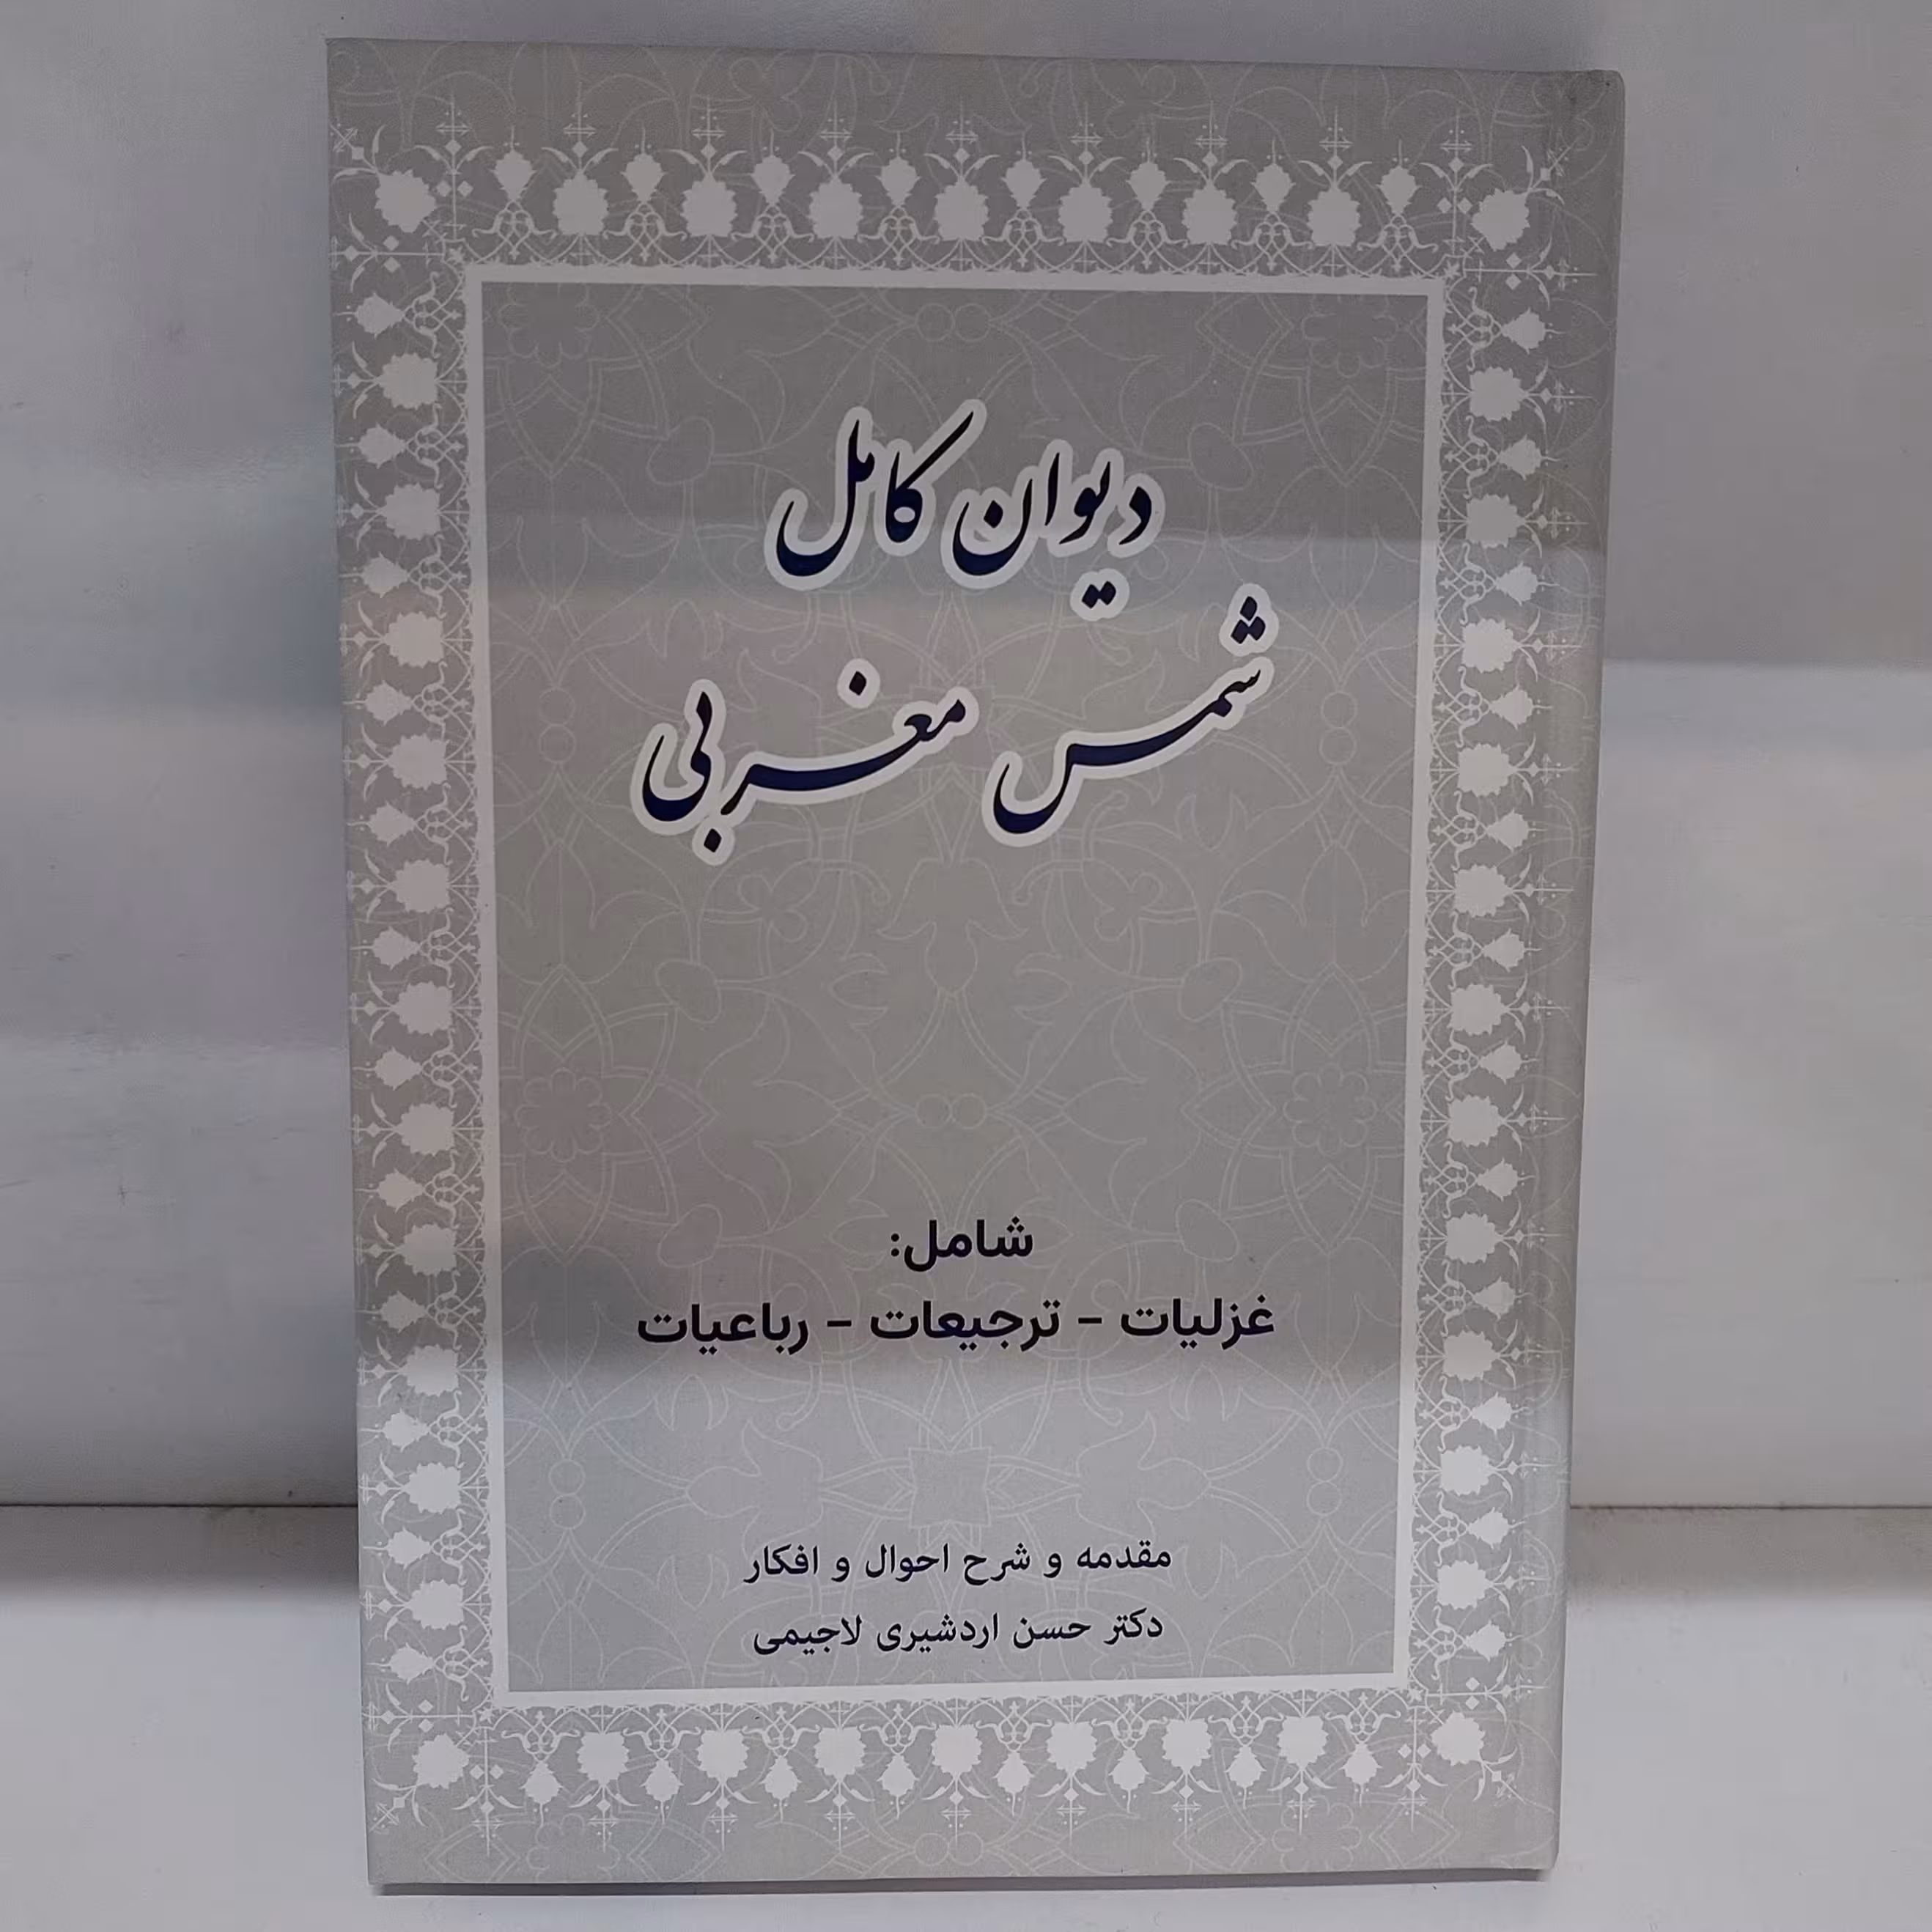 دیوان کامل
شمس مغربی
شامل:
غزلیات - ترجیعات - رباعیات
مقدمه و شرح احوال و افکار
دکتر حسن اردشیری لاجیمی